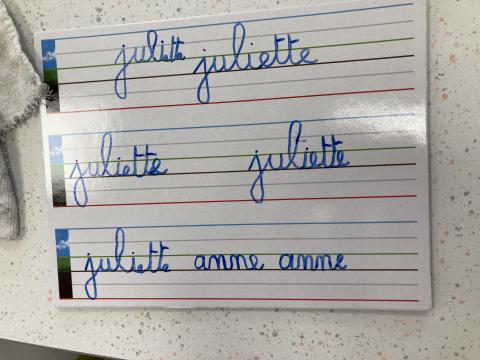 juliette juliette
juliette juliette
juliette anne anne